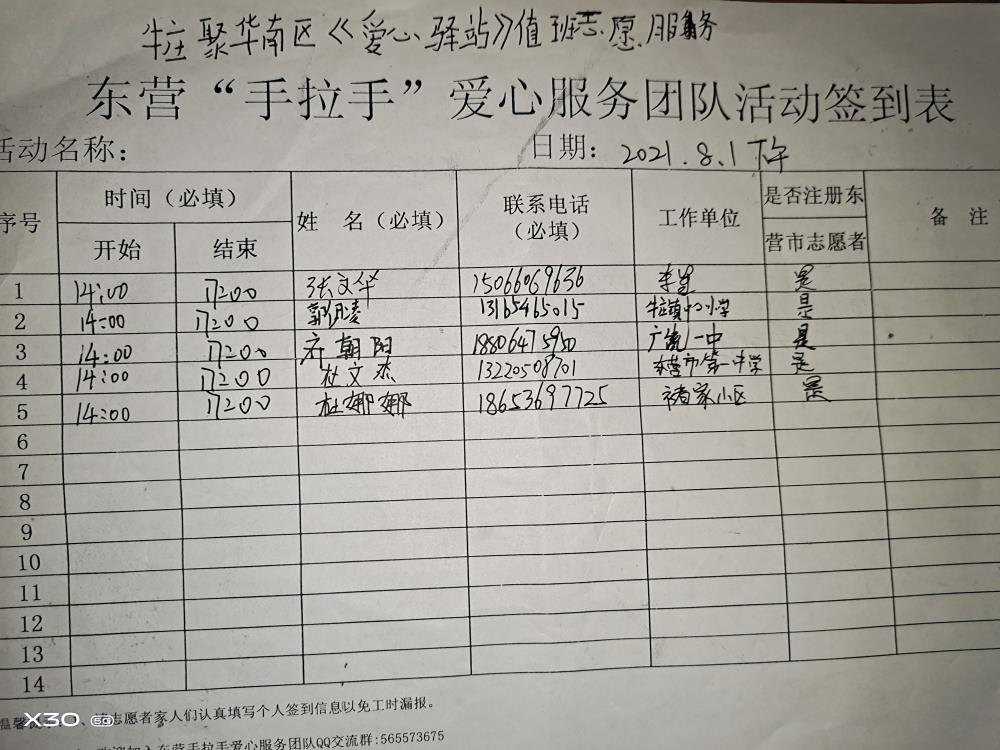 牛庄聚华南区《爱心驿站》值班志愿服务
东营“手拉手”爱心服务团队活动签到表
活动名称： 日期：2021.8.1下午
序号 时间（必填） 姓 名（必填） 联系电话（必填） 工作单位 是否注册东营市志愿者 备 注
开始 结束
1 14:00 17:00 张文华 15066069636 是
2 14:00 17:00 13165465015 牛庄镇中心小学 是
3 14:00 17:00 朝阳 18806475950 广饶一中 是
4 14:00 17:00 杜文杰 13220508701 东营市第一中学 是
5 14:00 17:00 杜娜娜 18653697725 褚家小区 是
6
7
8
9
10
11
12
13
14
温馨 志愿者家人们认真填写个人签到信息以免工时漏报。
欢迎加入东营手拉手爱心服务团队QQ交流群:565573675
X30 5G